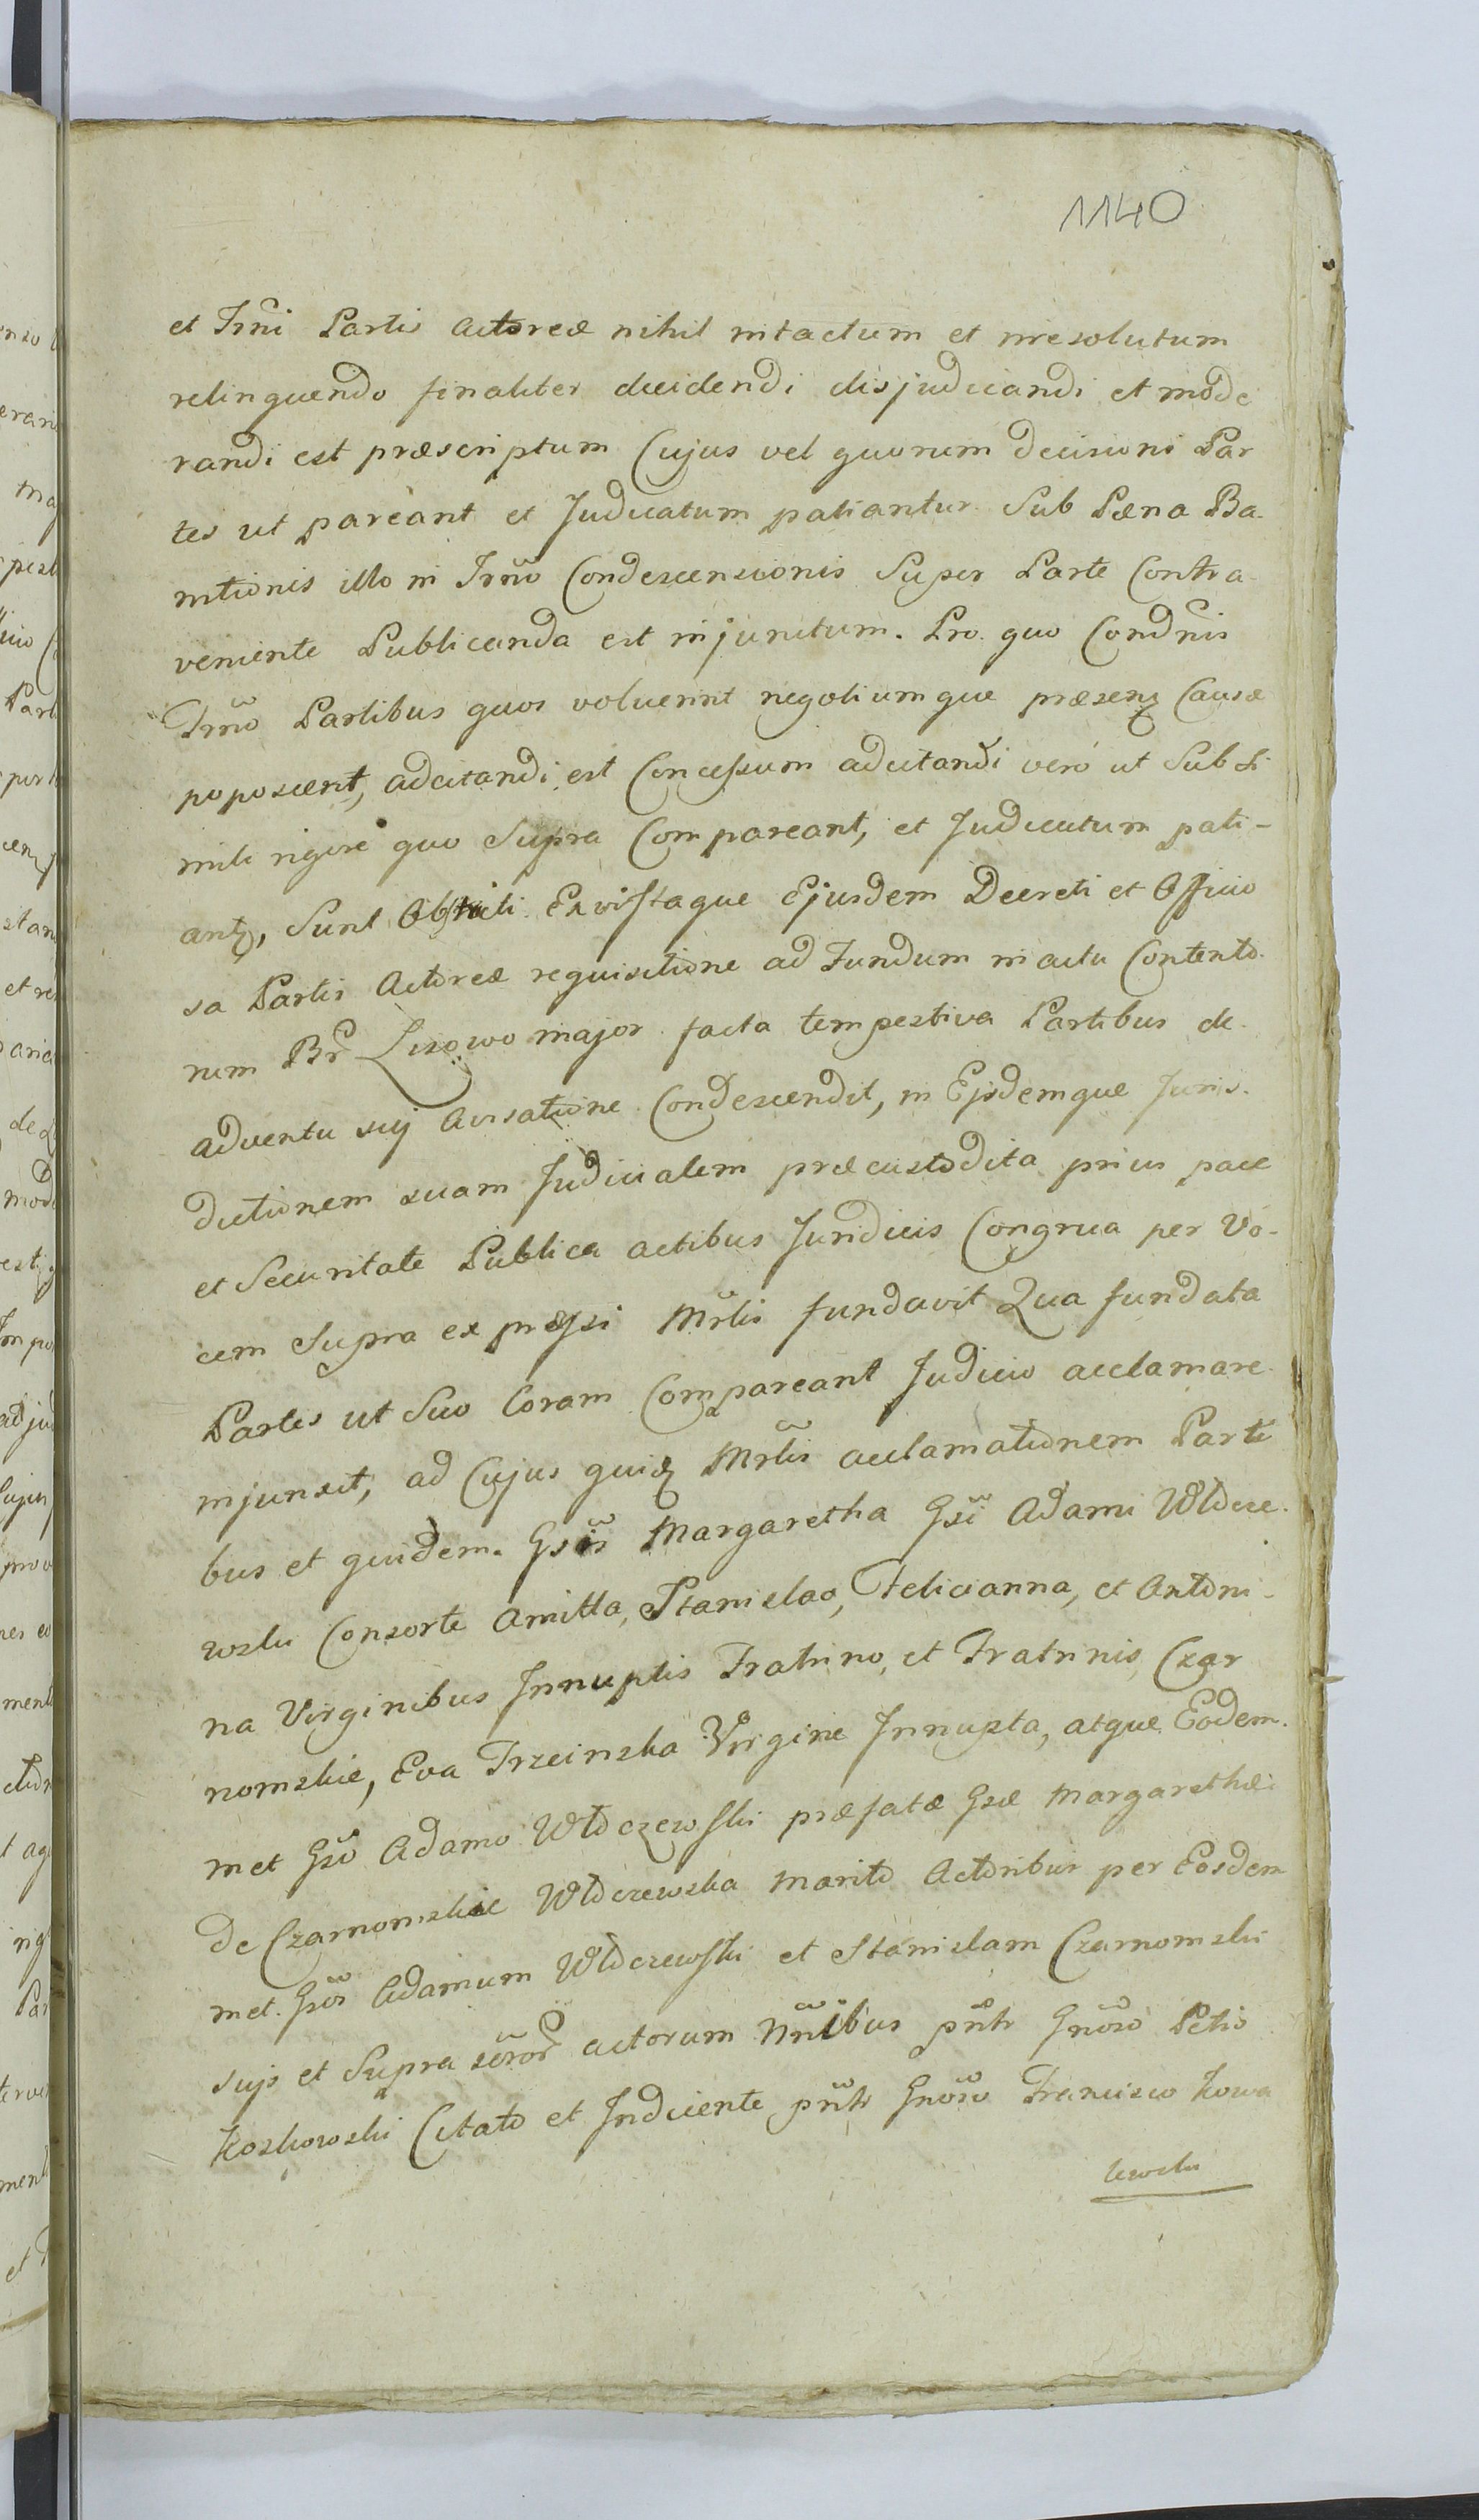 1140
et Trñi Partis Actoreæ nihil intactum et irresolutum
relinquendo finaliter decidendi disjudicandi et mode
randi est præscriptum Cujus vel quorum decisioni Par
tes ut pareant et Judicatum patiantur Sub Pæna Ba-
nitionis illo in Trño Condescensionis Super Parte Contra-
veniente Publicanda est injunctum. Pro quo Condñis
Trño Partibus quos voluerint negotiumque præsenz Causæ
poposcerit, adcitandi est Concessum adcitandi verò ut Sub si
mili rigore quo Supra Compareant, et Judicatum pati-
antz, Sunt Obstricti Ex vi Itaque Ejusdem Decreti et Officio
sa Partis Actoreæ requisitione ad Fundum in actu Contento-
rum Br̃ Lisowo major facta tempestiva Partibus de
adventu suj Avisatione Condescendit, in Ejsdemque Juris-
dictionem suam Judicialem præcustodita prius pace
et Securitate Publica actibus Juridicis Congrua per Vo-
cem Supra expressi Mr̃lis fundavit Qua fundata
Partes ut Suo Coram Compareant Judicio acclamare
injunxit, ad Cujus quiz Mr̃lis acclamationem Parti
bus et quidem. Gsis Margaretha Gsi Adami Włocze-
wski Consorte Amitta, Stanislao, Felicianna, et Antoni-
na Virginibus Innuptis Fratrino, et Fratrinis Czar
nomskie, Eva Trzcinska Virgine Innupta, atque Eodem-
met Gsõ Adamo Włoczewski præfatæ Gsæ Margarethæ
de Czarnomskie Włoczewska Marito Actoribus per Eosdem
met Gsos Adamum Włoczewski et Stanislam Czarnomski
sujs et Supra actorum Nñibus pñtr Gñoso Petro
Koskowski Citato et Inducente pñtr Gñoso Francisco Kowa
lewski